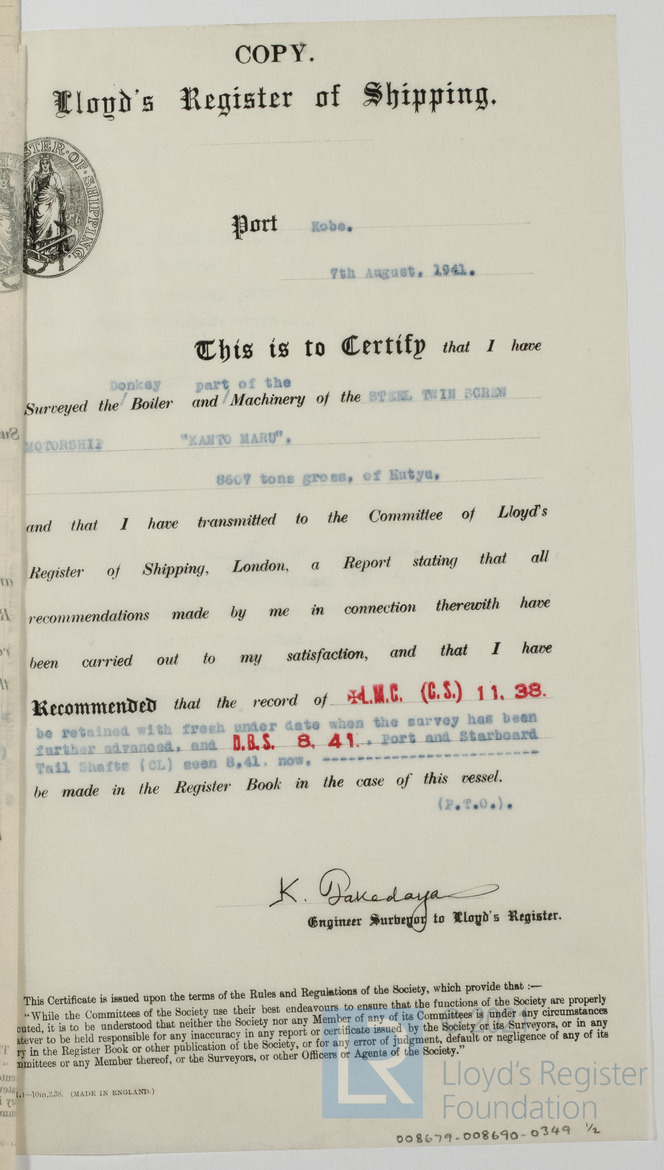 COPY.
Lloyd's Register of Shipping.
STER·OF·SHIPPING.
Port Kobe.
7th August, 1941.
This is to Certify that I have
Donkey part of the
Surveyed the / Boiler and / Machinery of the STEEL TWIN SCREW
MOTORSHIP "KANTO MARU",
8607 tons gross, of Hutyu,
and that I have transmitted to the Committee of Lloyd's
Register of Shipping, London, a Report stating that all
recommendations made by me in connection therewith have
been carried out to my satisfaction, and that I have
Recommended that the record of ✠L.M.C. (C.S.) 11, 38.
be retained with fresh under date when the survey has been
further advanced, and D.B.S. 8, 41.. Port and Starboard
Tail Shafts (CL) seen 8,41. now, --------------------------
be made in the Register Book in the case of this vessel.
(P.T.O.).
K. Takedaya
Engineer Surveyor to Lloyd's Register.
This Certificate is issued upon the terms of the Rules and Regulations of the Society, which provide that :—
"While the Committees of the Society use their best endeavours to ensure that the functions of the Society are properly
cuted, it is to be understood that neither the Society nor any Member of any of its Committees is under any circumstances
atever to be held responsible for any inaccuracy in any report or certificate issued by the Society or its Surveyors, or in any
ry in the Register Book or other publication of the Society, or for any error of judgment, default or negligence of any of its
mmittees or any Member thereof, or the Surveyors, or other Officers or Agents of the Society."
—10m,2.38. (MADE IN ENGLAND.)
LR
Lloyd's Register
Foundation
008679-008690-0349 ½